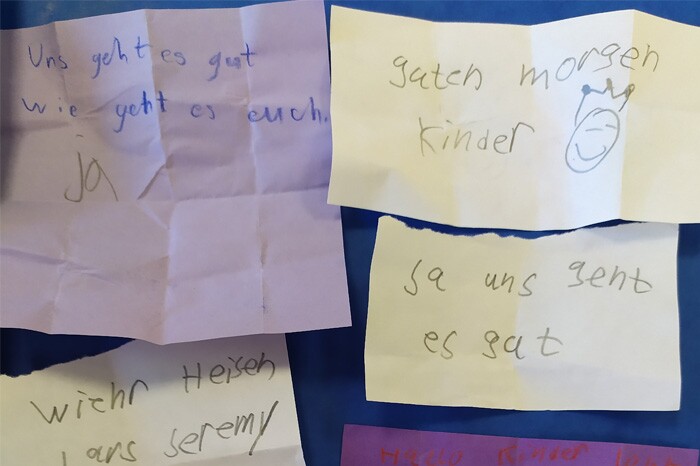 Uns geht es gut
wie geht es euch.
ja
guten morgen
kinder
Ja uns geht
es gut
wiehr Heisen
Lars Jeremy
Hallo Kinder